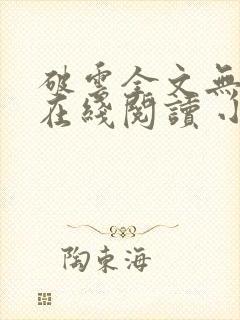 破雲全文無
在綫閱讀小
陶東海